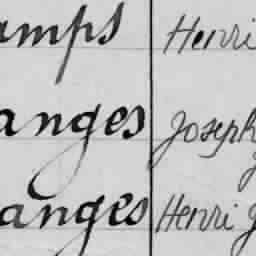 amps Henri
anges Joseph
anges Henri J